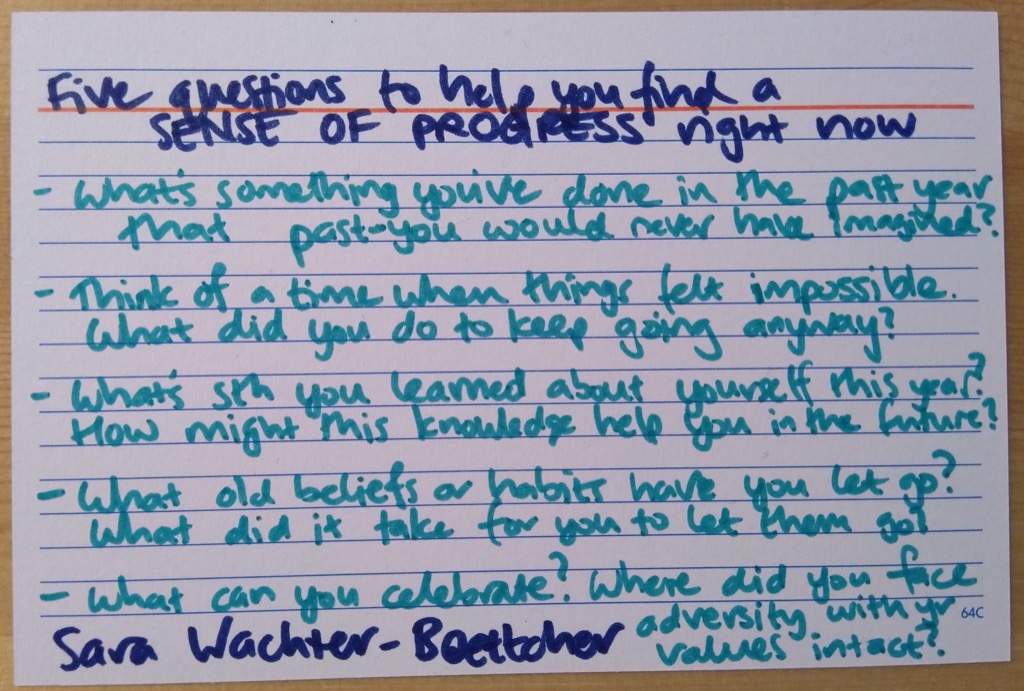 Five questions to help you find a
SENSE OF PROGRESS right now
- What's something you've done in the past year
that past-you would never have imagined?
- Think of a time when things felt impossible.
What did you do to keep going anyway?
- What's sth you learned about yourself this year?
How might this knowledge help you in the future?
- What old beliefs or habits have you let go?
What did it take for you to let them go?
- What can you celebrate? Where did you face
adversity with yr
values intact?
Sara Wachter-Boettcher
64C